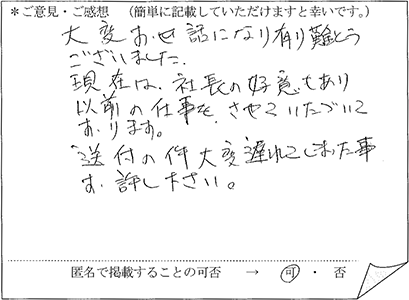 *ご意見・ご感想　(簡単に記載していただけますと幸いです。)
大変お世話になり有り難とう
ございました.
現在は、社長の好意もあり
以前の仕事を、させていただいて
おります。
送付の件大変遅れてしまった事
お許し下さい。
匿名で掲載することの可否　→　可・否